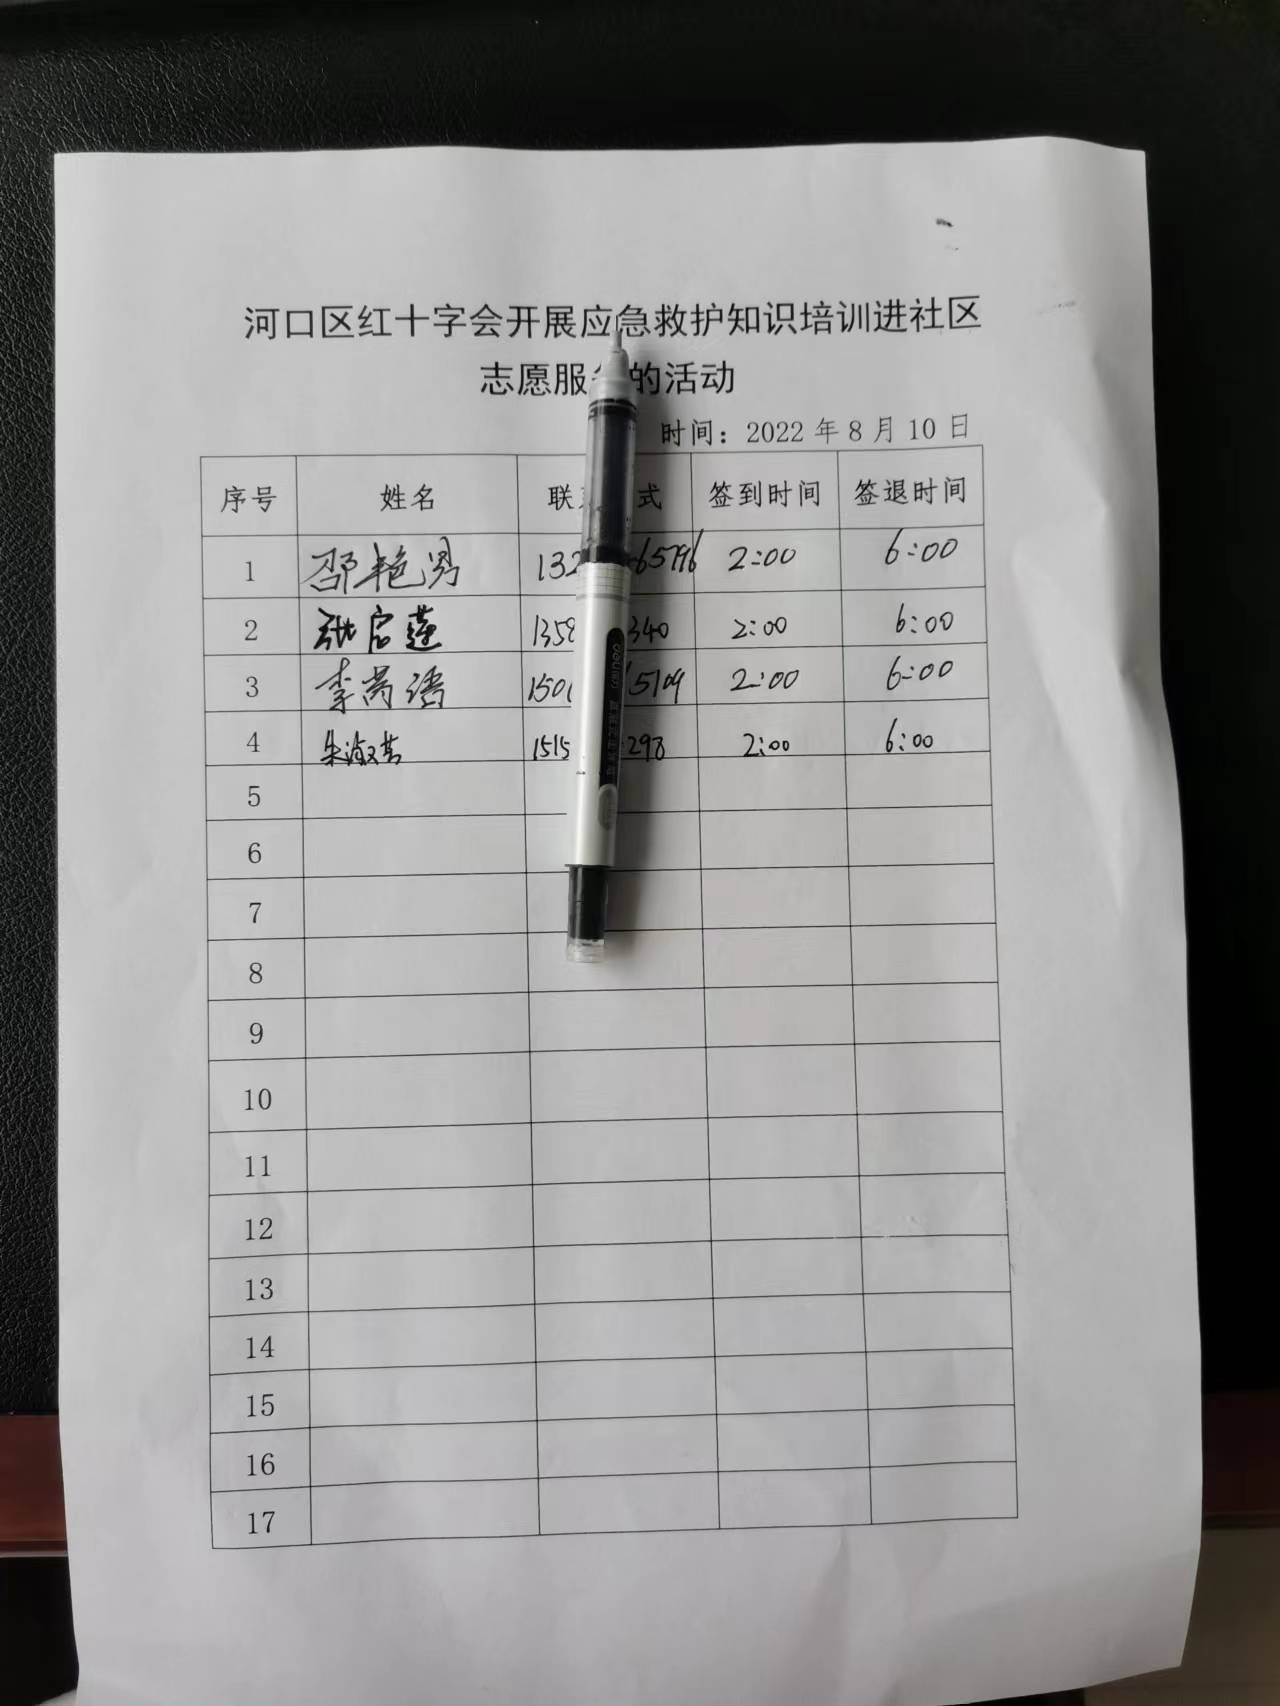 河口区红十字会开展应急救护知识培训进社区
志愿服 的活动
时间：2022年8月10日
序号 姓名 联 式 签到时间 签退时间
1 邵艳男 132 65796 2:00 6:00
2 张启莲 1358 340 2:00 6:00
3 李 语 150 5109 2:00 6:00
4 朱淑其 1515 298 2:00 6:00
5
6
7
8
9
10
11
12
13
14
15
16
17
deli